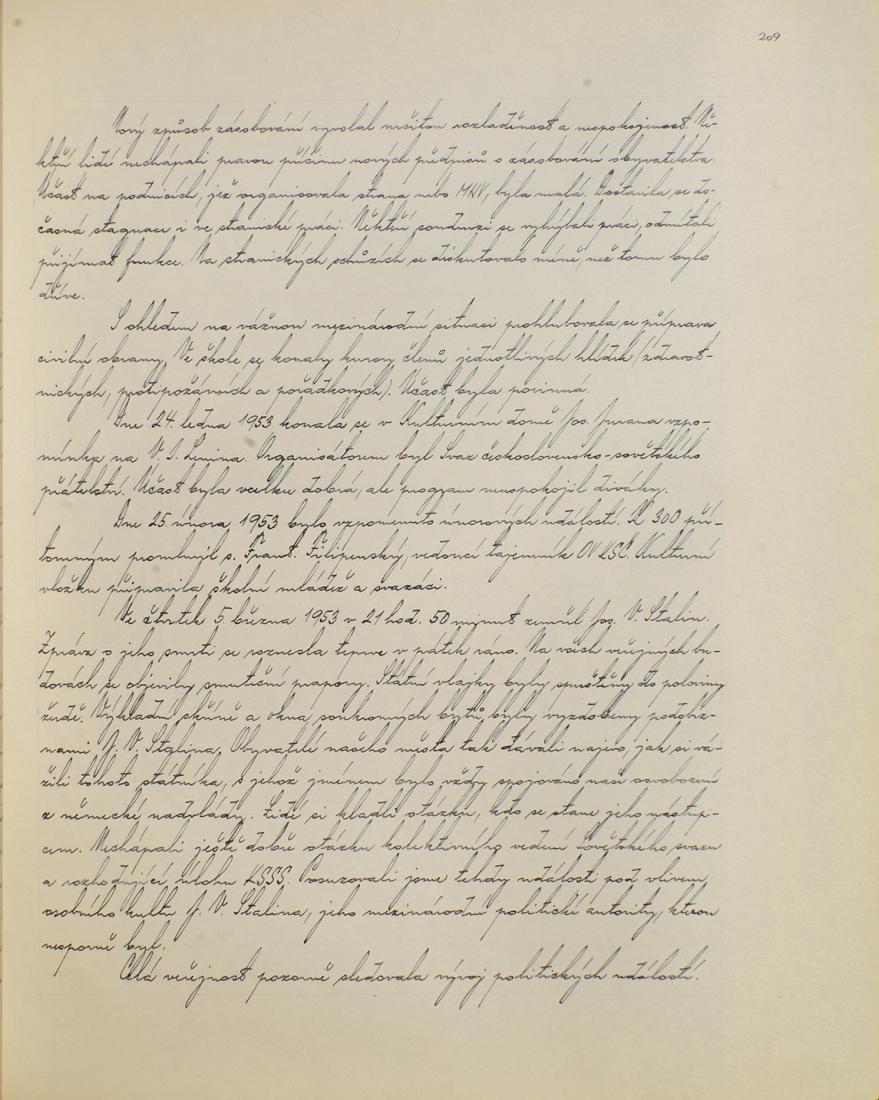 209
Nový způsob zásobování vyvolal určitou rozladěnost a nespokojenost. Ně-
kteří lidé nechápali pravou příčinu nových předpisů o zásobování obyvatelstva.
Účast na podnicích, jež organisovala strana nebo MNV, byla malá. Dostavila se do-
časná stagnace i ve stranické práci. Někteří soudruzi se vyhýbali práci, odmítali
přijímat funkce. Na stranických schůzích se diskutovalo méně, než tomu bylo
dříve.
S ohledem na vážnou mezinárodní situaci prohlubovala se příprava
civilní obrany. Ve škole se konaly kursy členů jednotlivých hlídek (zdravot-
nických, protipožárních a pořádkových). Účast byla povinná.
Dne 24. ledna 1953 konala se v Kulturním domě Jos. Jurana vzpo-
mínka na V. I. Lenina. Organisátorem byl Svaz československo-sovětského
přátelství. Účast byla vcelku dobrá, ale program neuspokojil diváky.
Dne 25. února 1953 bylo vzpomenuto únorových událostí. K 300 pří-
tomným promluvil s. Frant. Filipenský, vedoucí tajemník OV KSČ. Kulturní
vložku připravila školní mládež a svazáci.
Ve čtvrtek 5. března 1953 v 21 hod. 50 minut zemřel Jos. V. Stalin.
Zpráva o jeho smrti se roznesla teprve v pátek ráno. Na všech veřejných bu-
dovách se objevily smuteční prapory. Státní vlajky byly spuštěny do poloviny
žerdě. Výkladní skříně a okna soukromých bytů byly vyzdobeny podobiz-
nami J. V. Stalina. Obyvatelé našeho města tak dávali najevo, jak si vá-
žili tohoto státníka, s jehož jménem bylo vždy spojováno naše osvobození
z německé nadvlády. Lidé si kladli otázku, kdo se stane jeho nástup-
cem. Nechápali ještě dobře otázku kolektivního vedení Sovětského svazu
a rozhodující úlohu KSSS. Posuzovali jsme tehdy události pod vlivem
osobního kultu J. V. Stalina, jeho mezinárodní politické autority, kterou
nesporně byl.
Celá veřejnost pozorně sledovala vývoj politických událostí.